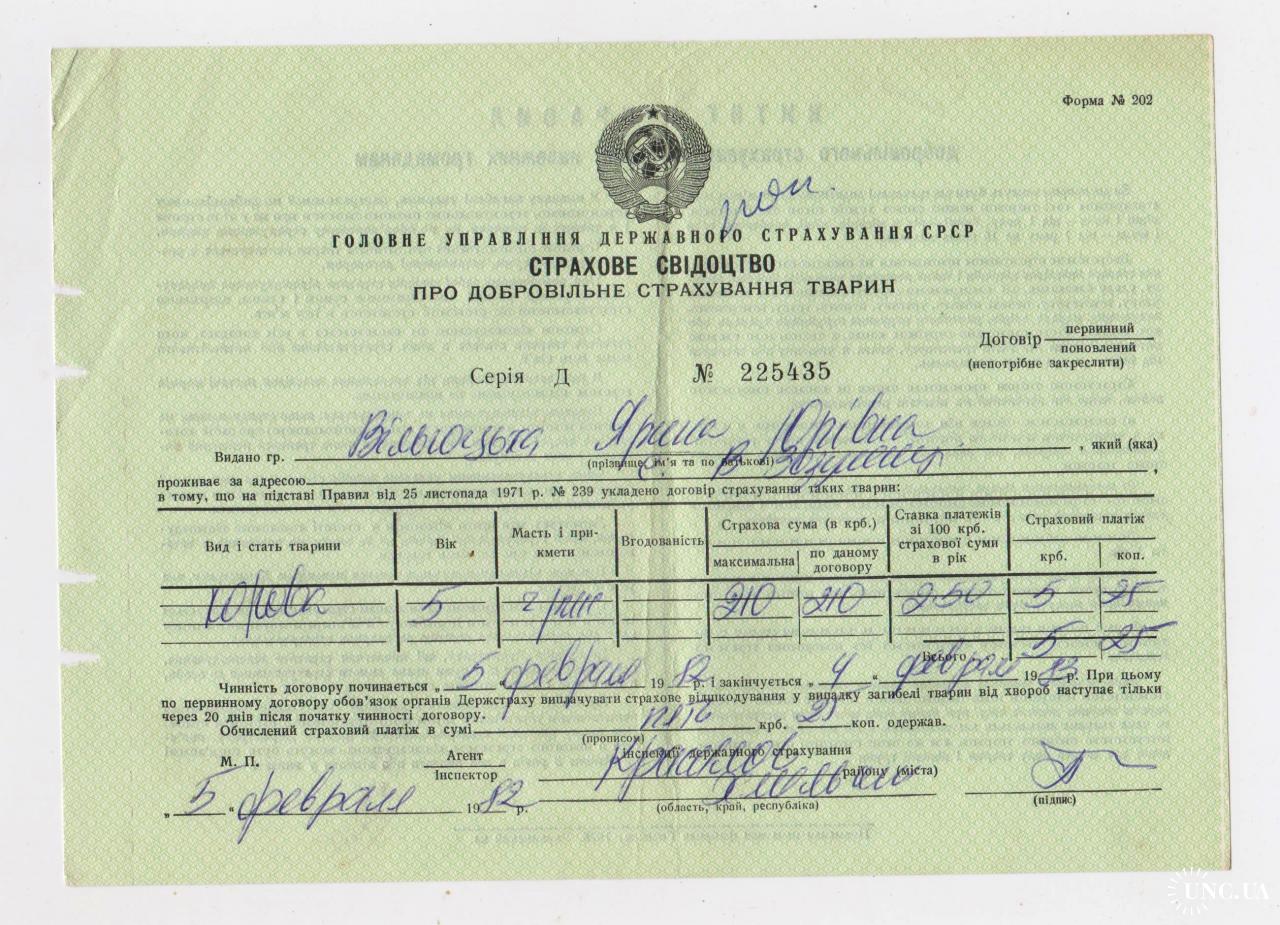 Форма № 202
ГОЛОВНЕ УПРАВЛІННЯ ДЕРЖАВНОГО СТРАХУВАННЯ СРСР
СТРАХОВЕ СВІДОЦТВО
ПРО ДОБРОВІЛЬНЕ СТРАХУВАННЯ ТВАРИН
Договір первинний
поновлений
(непотрібне закреслити)
Серія Д № 225435
Видано гр. Вільгоцька Ярина Юрівна, який (яка)
(прізвище, ім'я та по батькові)
проживає за адресою с. В Зозулинці,
в тому, що на підставі Правил від 25 листопада 1971 р. № 239 укладено договір страхування таких тварин:
Вид і стать тварини Вік Масть і прикмети Вгодованість Страхова сума (в крб.) максимальна по даному договору Ставка платежів зі 100 крб. страхової суми в рік Страховий платіж крб. коп.
корова 5 210 210 2-50 5 25
Всього 5 25
Чинність договору починається „5“ февраля 1982 р. і закінчується „4“ февраля 1983 р. При цьому
по первинному договору обов'язок органів Держстраху виплачувати страхове відшкодування у випадку загибелі тварин від хвороб наступає тільки
через 20 днів після початку чинності договору.
Обчислений страховий платіж в сумі пять крб. 25 коп. одержав.
(прописом)
М. П. Агент Інспекції державного страхування
Інспектор району (міста)
„5“ февраля 1982 р. (область, край, республіка) (підпис)
UNC.UA